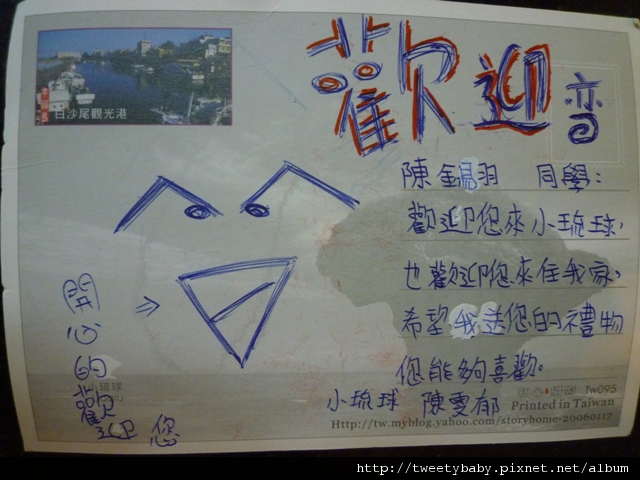 歡迎
白沙尾觀光港
陳錫羽 同學：
歡迎您來小琉球，
也歡迎您來住我家，
希望我送您的禮物
您能夠喜歡。
小琉球 陳雯郁
開心的歡迎您
小琉球
TW095
Printed in Taiwan
Http://tw.myblog.yahoo.com/storyhome-20060117
http://tweetybaby.pixnet.net/album